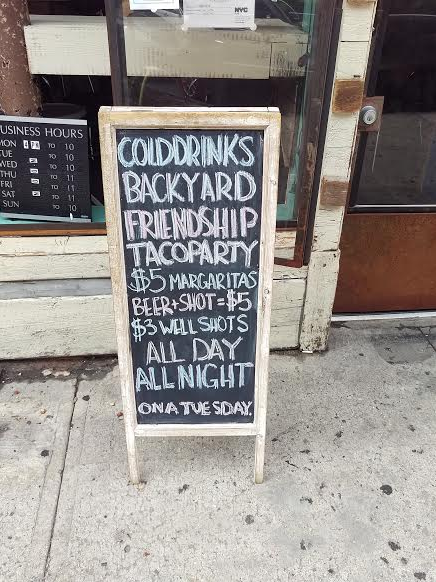 NYC
COLD DRINKS
BACKYARD
FRIENDSHIP
TACO PARTY
$5 MARGARITAS
BEER + SHOT = $5
$3 WELL SHOTS
ALL DAY
ALL NIGHT
ON A TUESDAY.
USINESS HOURS
MON TO 10
TUE TO 10
WED TO 10
THU TO 11
FRI TO 11
SAT TO 11
SUN TO 10